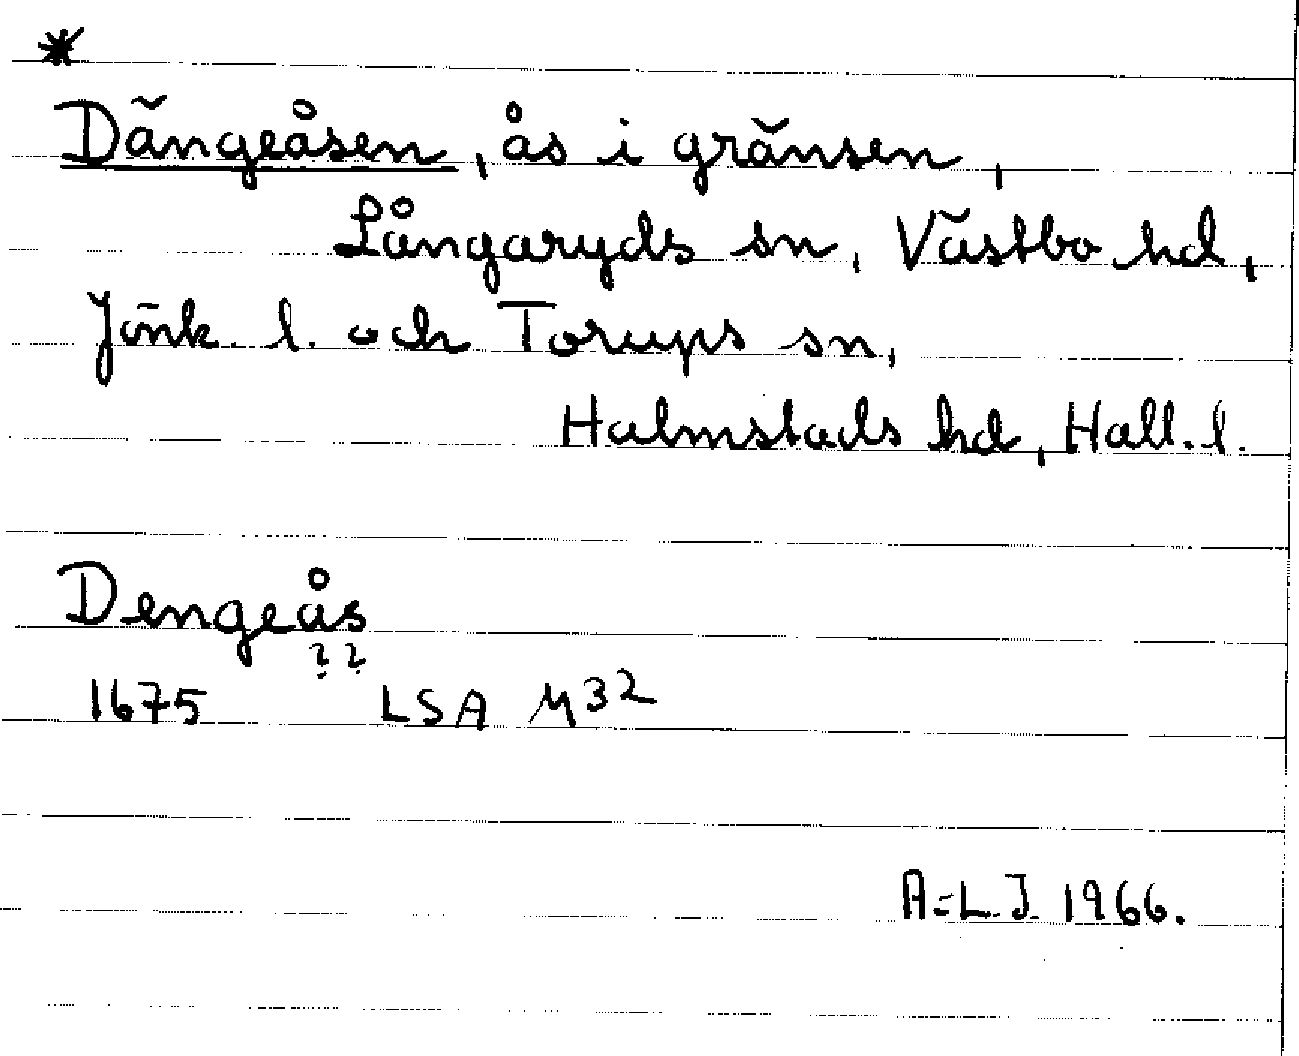 *
Dängeåsen, ås i gränsen,
Långaryds sn, Västbo hd,
Jönk. l. och Torups sn,
Halmstads hd, Hall. l.
Dengeås
? ?
1675 LSA M32
A-L. J. 1966.